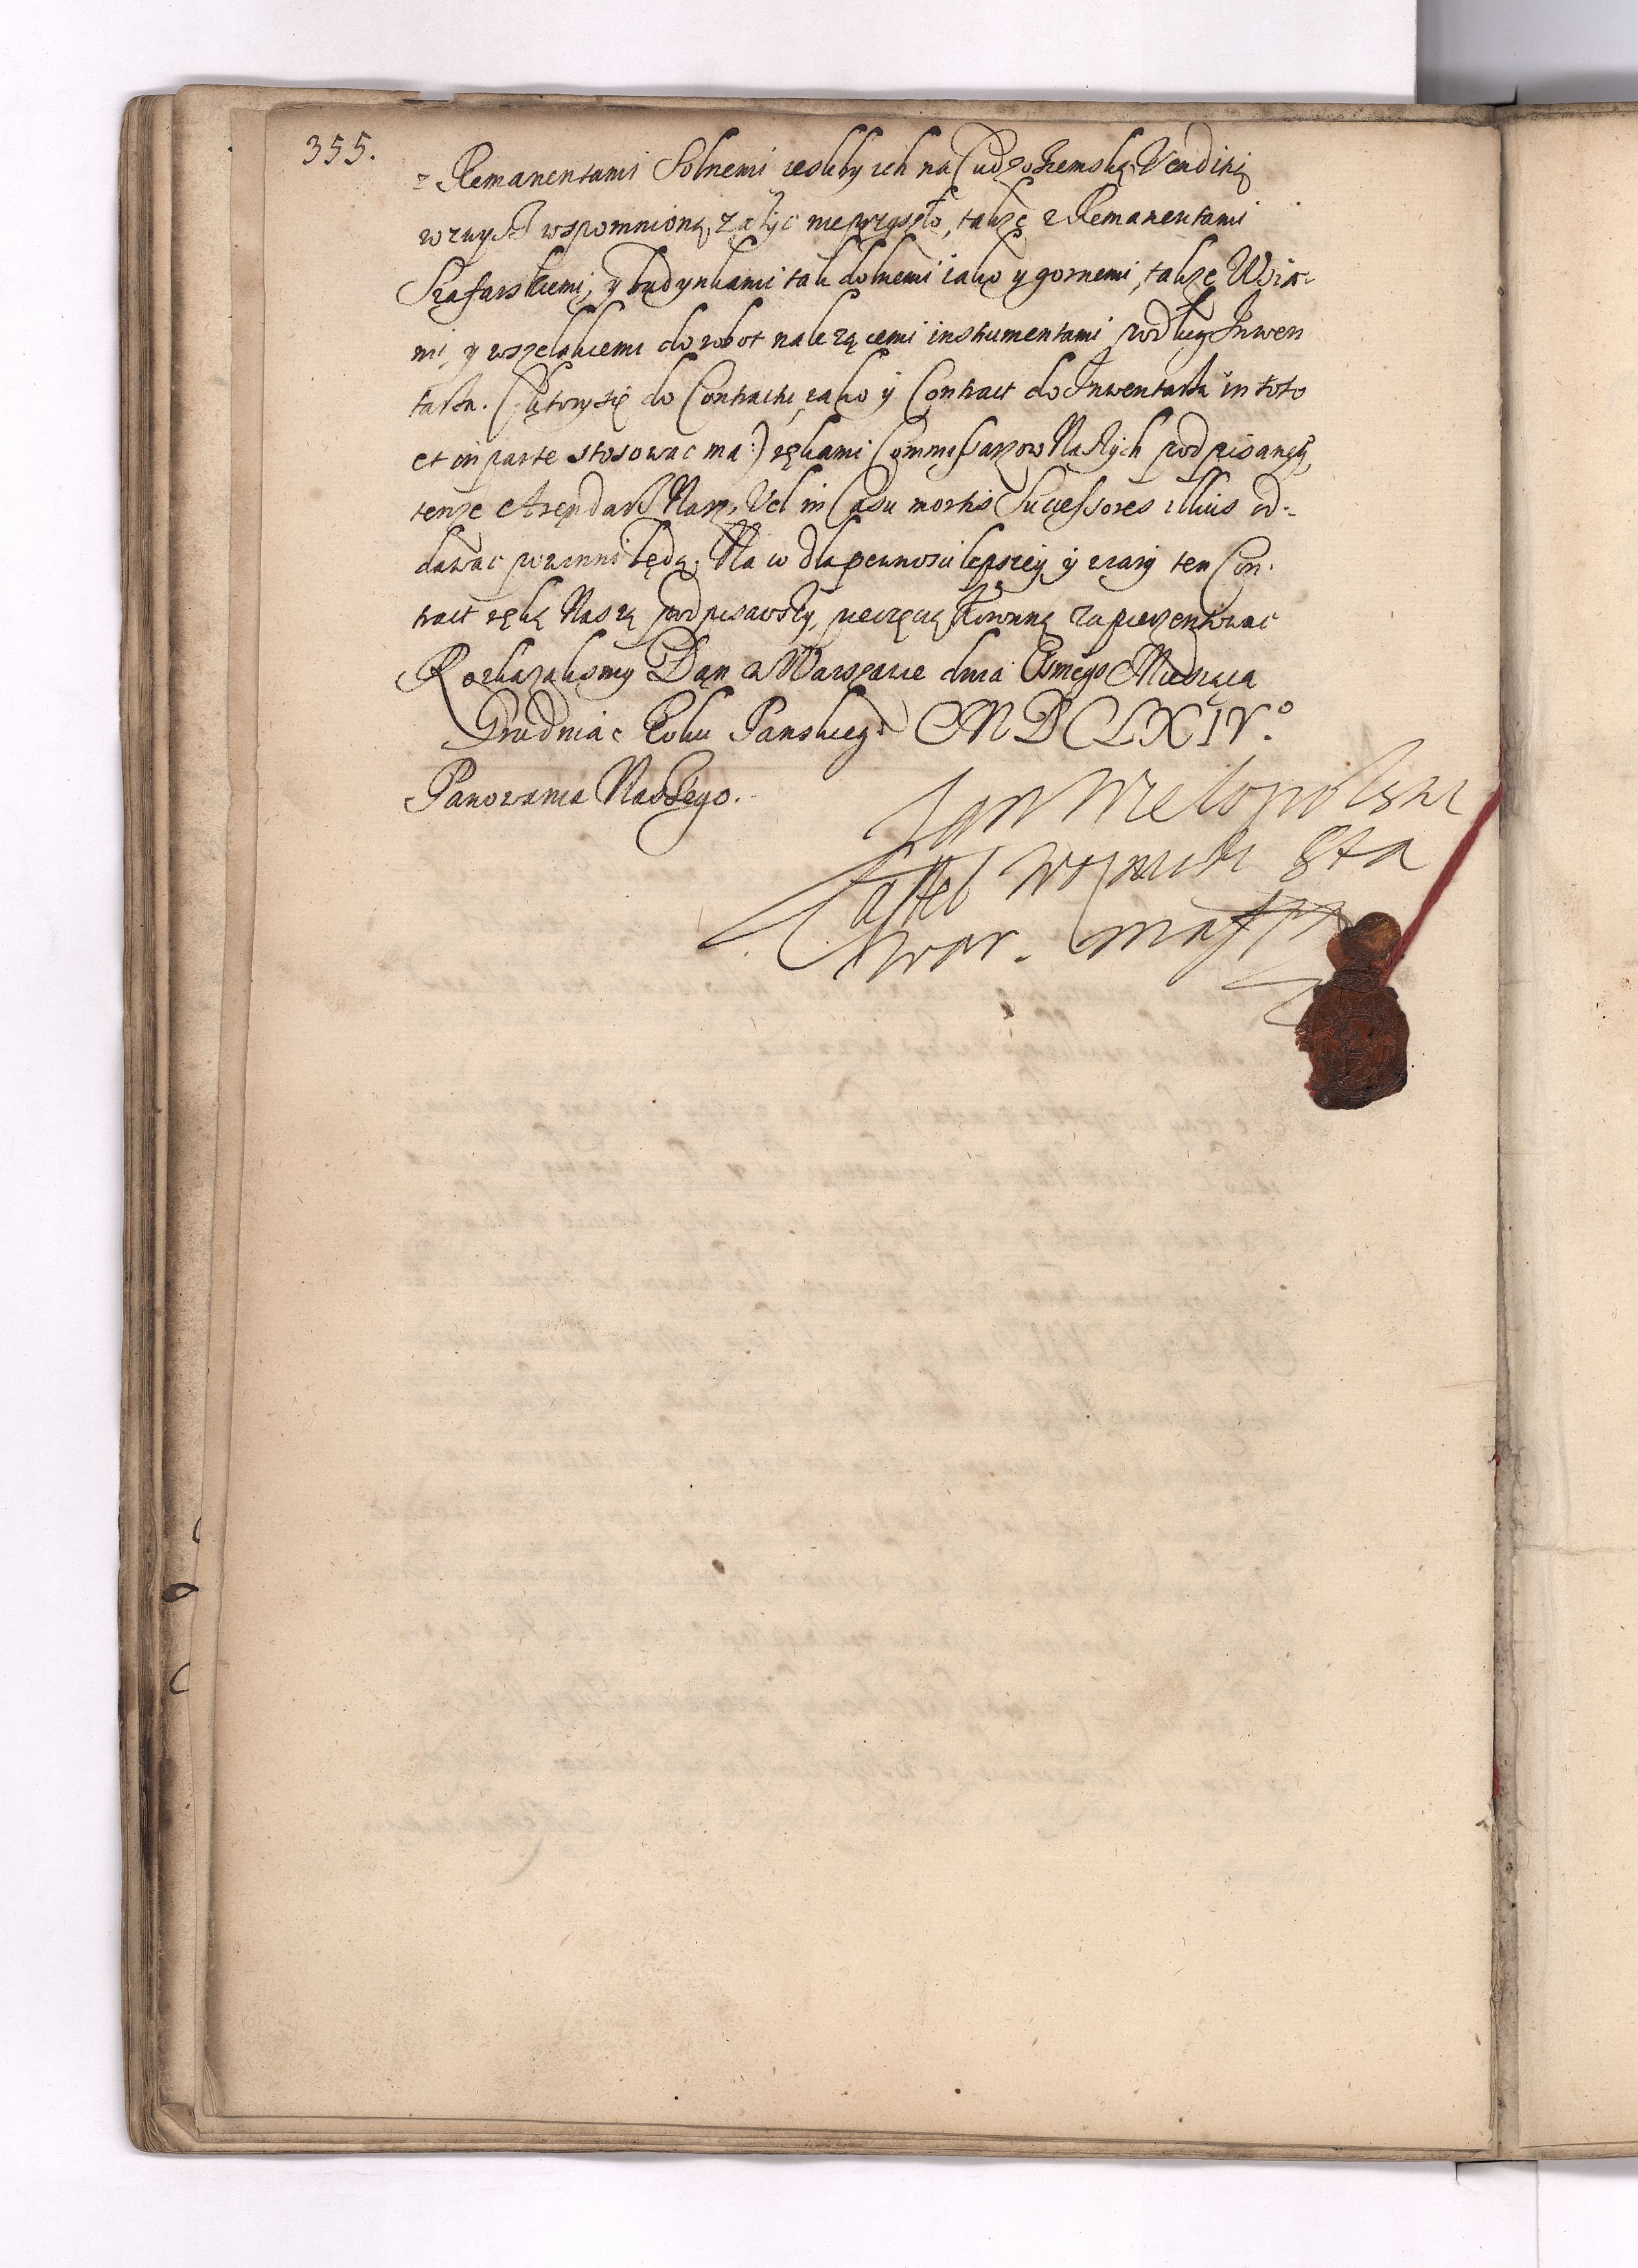 355.
z Remanentami Solnemi ieśliby ich na Cudzoziemską Venditią
wzwyż wspomnioną zażyć nieprzyszło, także z Remanentami
Szafarskiemi, y budynkami tak dolnemi iako y gornemi, także
mi y wszelakiemi do robot należącemi instrumentami podług Inwen
tarża. (:który się do Contractu, iako y Contract do Inwentarża in toto
et in parte stosować ma:) rękami Commissarzow Naszych podpisanego,
tenże Arendarz Nasz, Vel in Casu mortis Successores illius od-
dawać powinni będą. Na co dla pewności lepszey y wiary ten Con-
tract ręką Naszą podpisawszy, pieczęcią zapieczentować
Rozkazalismy Dan w Warszawie dnia Osmego Miesiąca
Grudnia Roku Panskiego MDCLXIV.º
Panowania Naszego.
Jan Wielopolski
Castel Woynicki Sta
War. mpp